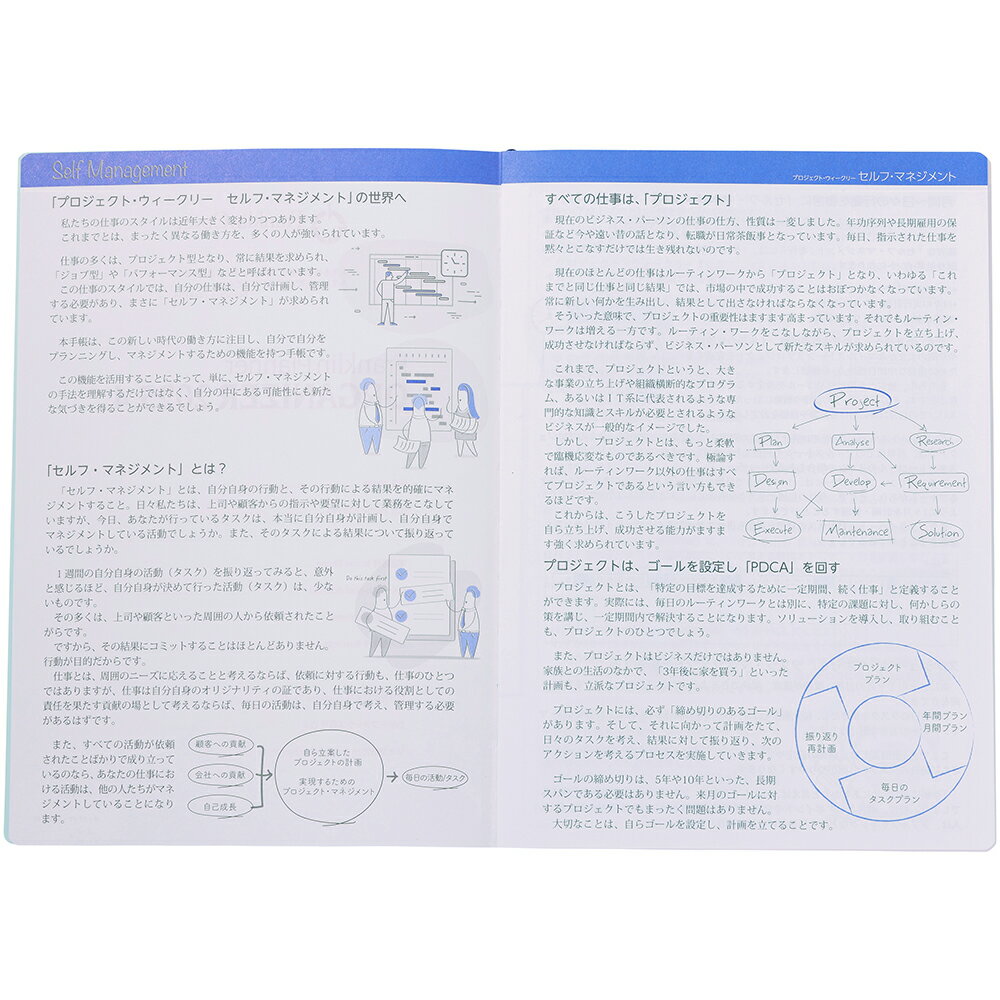 Self Management
「プロジェクト・ウィークリー　セルフ・マネジメント」の世界へ
私たちの仕事のスタイルは近年大きく変わりつつあります。
これまでとは、まったく異なる働き方を、多くの人が強いられています。
仕事の多くは、プロジェクト型となり、常に結果を求められ、
「ジョブ型」や「パフォーマンス型」などと呼ばれています。
この仕事のスタイルでは、自分の仕事は、自分で計画し、管理
する必要があり、まさに「セルフ・マネジメント」が求められ
ています。
本手帳は、この新しい時代の働き方に注目し、自分で自分を
プランニングし、マネジメントするための機能を持つ手帳です。
この機能を活用することによって、単に、セルフ・マネジメント
の手法を理解するだけではなく、自分の中にある可能性にも新た
な気づきを得ることができるでしょう。
「セルフ・マネジメント」とは？
「セルフ・マネジメント」とは、自分自身の行動と、その行動による結果を的確にマネ
ジメントすること。日々私たちは、上司や顧客からの指示や要望に対して業務をこなして
いますが、今日、あなたが行っているタスクは、本当に自分自身が計画し、自分自身で
マネジメントしている活動でしょうか。また、そのタスクによる結果について振り返って
いるでしょうか。
1週間の自分自身の活動（タスク）を振り返ってみると、意外
と感じるほど、自分自身が決めて行った活動（タスク）は、少な
いものです。
その多くは、上司や顧客といった周囲の人から依頼されたこと
がらです。
ですから、その結果にコミットすることはほとんどありません。
行動が目的だからです。
Do this task first
仕事とは、周囲のニーズに応えることと考えるならば、依頼に対する行動も、仕事のひとつ
ではありますが、仕事は自分自身のオリジナリティの証であり、仕事における役割としての
責任を果たす貢献の場として考えるならば、毎日の活動は、自分自身で考え、管理する必要
があるはずです。
また、すべての活動が依頼
されたことばかりで成り立って
いるのなら、あなたの仕事にお
ける活動は、他の人たちがマネ
ジメントしていることになり
ます。
顧客への貢献
会社への貢献
自己成長
自ら立案した
プロジェクトの計画
実現するための
プロジェクト・マネジメント
毎日の活動/タスク
プロジェクト・ウィークリー セルフ・マネジメント
すべての仕事は、「プロジェクト」
現在のビジネス・パーソンの仕事の仕方、性質は一変しました。年功序列や長期雇用の保
証など今や遠い昔の話となり、転職が日常茶飯事となっています。毎日、指示された仕事を
黙々とこなすだけでは生き残れないのです。
現在のほとんどの仕事はルーティンワークから「プロジェクト」となり、いわゆる「これ
までと同じ仕事と同じ結果」では、市場の中で成功することはおぼつかなくなっています。
常に新しい何かを生み出し、結果として出さなければならなくなっています。
そういった意味で、プロジェクトの重要性はますます高まっています。それでもルーティン・
ワークは増える一方です。ルーティン・ワークをこなしながら、プロジェクトを立ち上げ、
成功させなければならず、ビジネス・パーソンとして新たなスキルが求められているのです。
これまで、プロジェクトというと、大き
な事業の立ち上げや組織横断的なプログラ
ム、あるいはＩＴ系に代表されるような専
門的な知識とスキルが必要とされるような
ビジネスが一般的なイメージでした。
しかし、プロジェクトとは、もっと柔軟
で臨機応変なものであるべきです。極論す
れば、ルーティンワーク以外の仕事はすべ
てプロジェクトであるという言い方もでき
るほどです。
これからは、こうしたプロジェクトを
自ら立ち上げ、成功させる能力がますま
す強く求められています。
Project
Plan
Analyse
Research
Design
Develop
Requirement
Execute
Maintenance
Solution
プロジェクトは、ゴールを設定し「PDCA」を回す
プロジェクトとは、「特定の目標を達成するために一定期間、続く仕事」と定義すること
ができます。実際には、毎日のルーティンワークとは別に、特定の課題に対し、何かしらの
策を講じ、一定期間内で解決することになります。ソリューションを導入し、取り組むこと
も、プロジェクトのひとつでしょう。
また、プロジェクトはビジネスだけではありません。
家族との生活のなかで、「3年後に家を買う」といった
計画も、立派なプロジェクトです。
プロジェクトには、必ず「締め切りのあるゴール」
があります。そして、それに向かって計画をたて、
日々のタスクを考え、結果に対して振り返り、次の
アクションを考えるプロセスを実施していきます。
ゴールの締め切りは、5年や10年といった、長期
スパンである必要はありません。来月のゴールに対
するプロジェクトでもまったく問題はありません。
大切なことは、自らゴールを設定し、計画を立てることです。
プロジェクト
プラン
年間プラン
月間プラン
毎日の
タスクプラン
振り返り
再計画